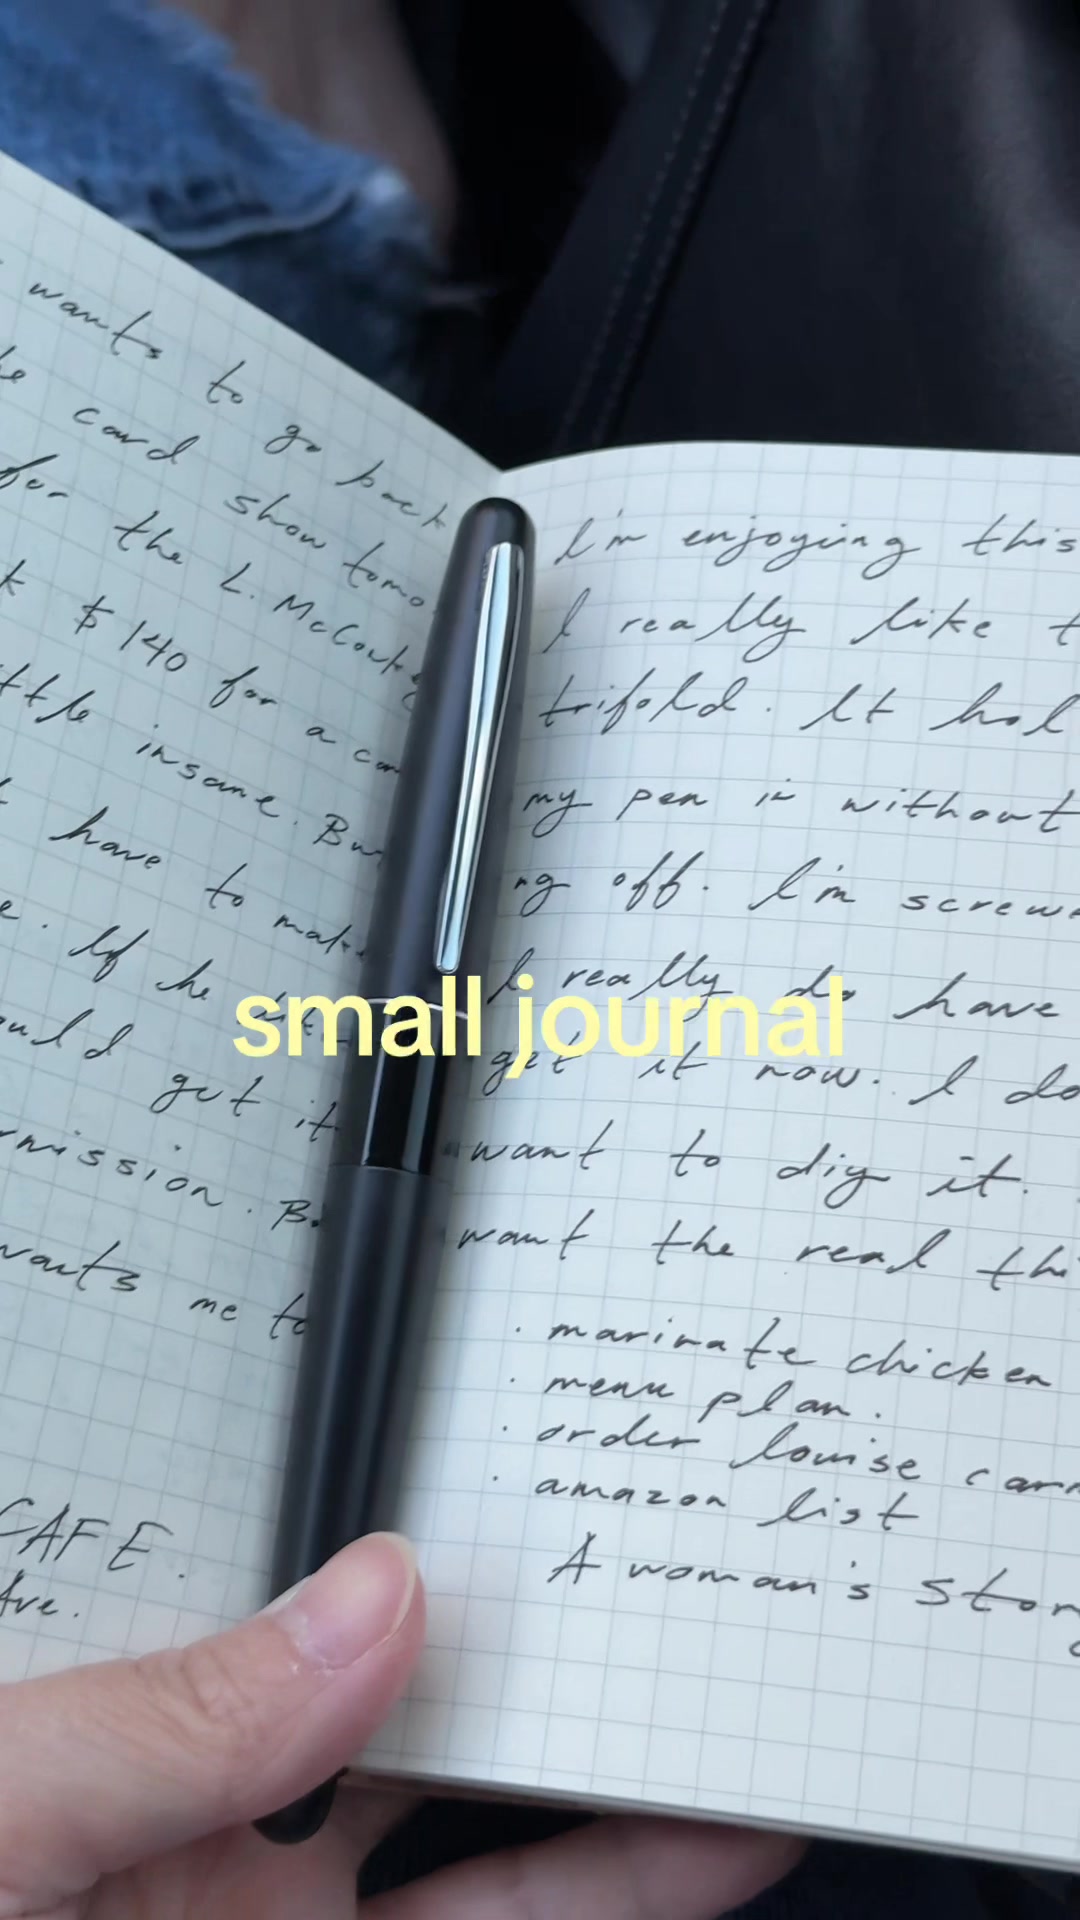 wants to go back
card show tomo
for the L. McCouts
$140 for a
insane. Bu
have to make
If he
ould get it
rmission. B
wants me to
CAFE.
Ave.
I'm enjoying this
I really like t
trifold. It hol
my pen in without
ng off. I'm screwe
I really do have
get it now. I do
want to diy it.
want the real thi
· marinate chicken
· menu plan.
· order louise carm
· amazon list
A woman's stor
small journal